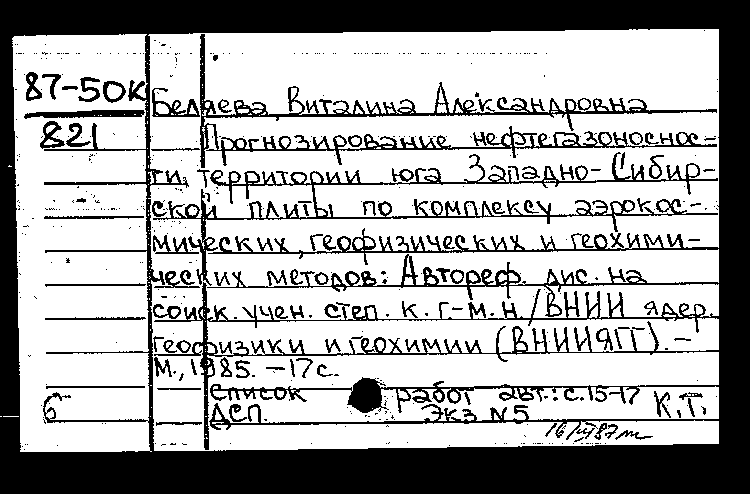 87-50К
821
Беляева, Виталина Александровна
Прогнозирование нефтегазоноснос-
ти территории юга Западно-Сибир-
ской плиты по комплексу аэрокос-
мических, геофизических и геохими-
ческих методов: Автореф. дис. на
соиск. учен. степ. к. г.-м. н. / ВНИИ ядер.
геофизики и геохимии (ВНИИЯГГ). –
М., 1985. – 17 с.
Список работ авт.: с. 15-17
б ДСП Экз N5 К.Т.